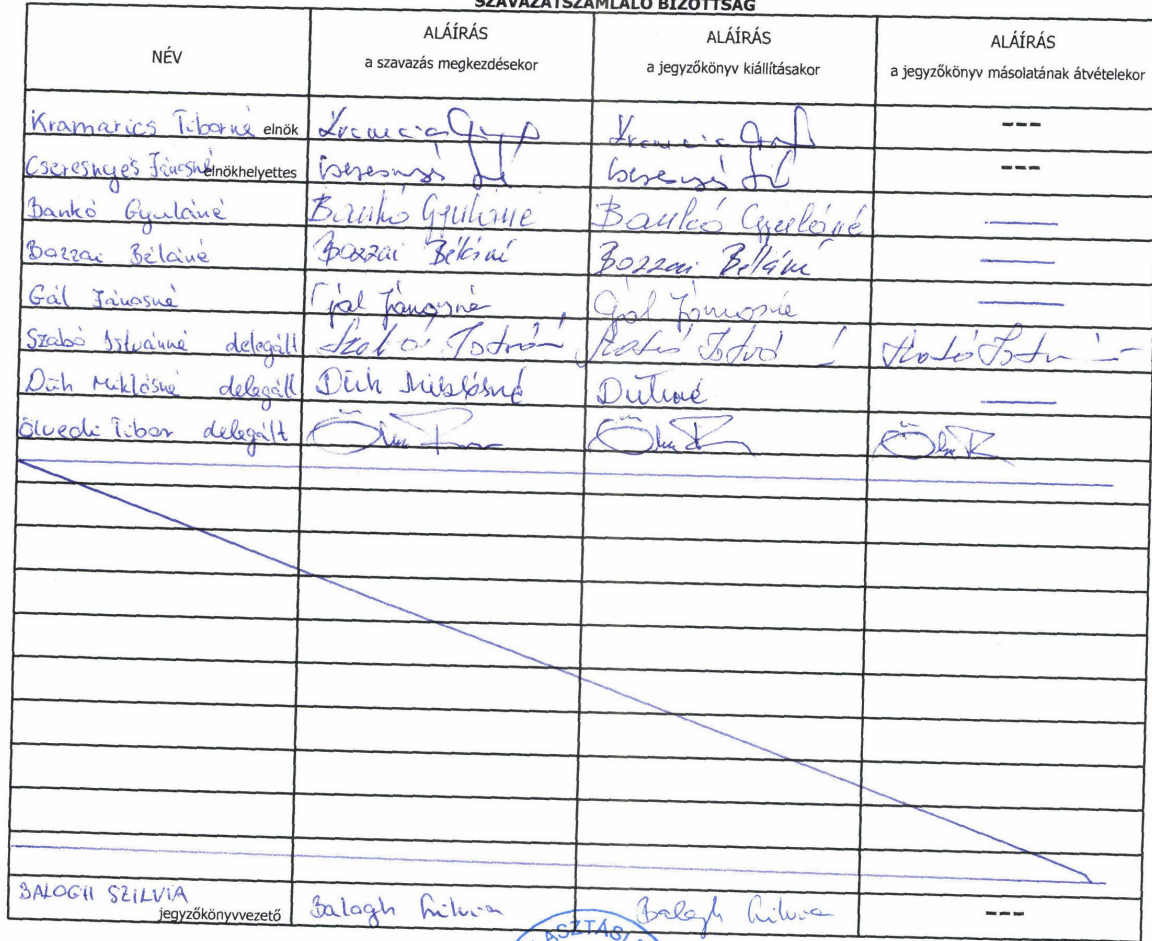 SZAVAZATSZÁMLÁLÓ BIZOTTSÁG
NÉV
ALÁÍRÁS
a szavazás megkezdésekor
ALÁÍRÁS
a jegyzőkönyv kiállításakor
ALÁÍRÁS
a jegyzőkönyv másolatának átvételekor
Kramarics Tiborné elnök ---
Cseresnyés Jánosné elnökhelyettes ---
Bankó Gyuláné Bankó Gyuláné Bankó Gyuláné
Bozzai Béláné Bozzai Béláné Bozzai Béláné
Gál Jánosné Gál Jánosné Gál Jánosné
Szabó Istvánné delegált
Düh Miklósné delegált Düh Miklósné Dühné
Ölvedi Tibor delegált
BALOGH SZILVIA Balogh Szilvia Balogh Szilvia ---
jegyzőkönyvvezető